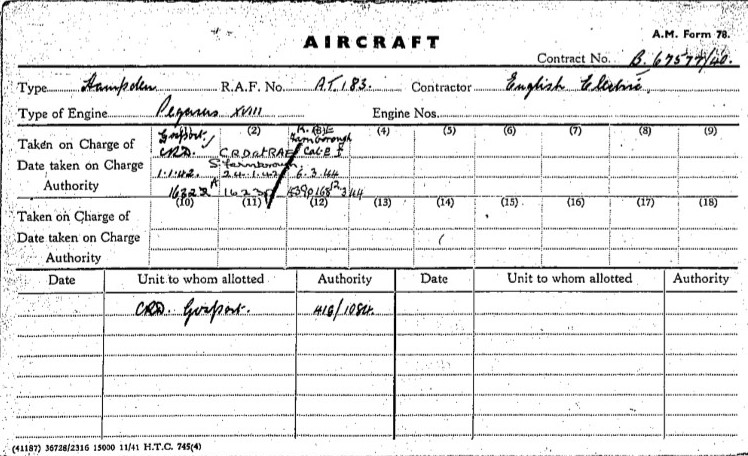 AIRCRAFT
A.M. Form 78.
Contract No. B. 67577/40.
Type Hampden R.A.F. No. AT.183. Contractor English Electric.
Type of Engine Pegasus XVIII Engine Nos.
(2) (4) (5) (6) (7) (8) (9)
Taken on Charge of Gosport CRD. C.R.D at RAE Farnborough Farnborough Cat. E
Date taken on Charge 1.1.42. 24.1.42 6.3.44
Authority 16322 1623
(10) (11) (12) (13) (14) (15) (16) (17) (18)
Taken on Charge of
Date taken on Charge
Authority
Date Unit to whom allotted Authority Date Unit to whom allotted Authority
CRD. Gosport. 416/1084.
(41187) 36728/2316 15000 11/41 H.T.C. 745(4)